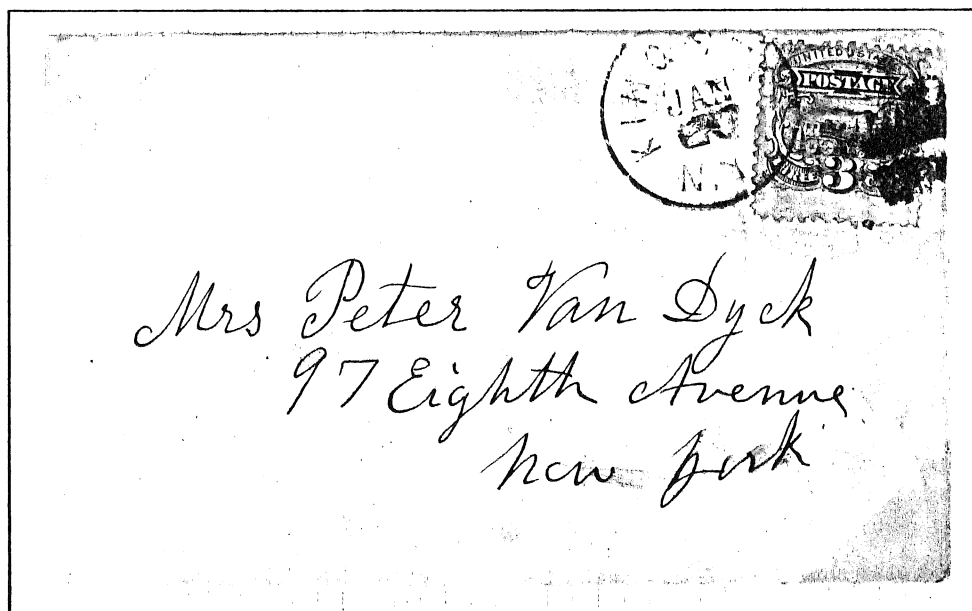 JAN
N.Y
UNITED STA
POSTAGE
3
Mrs Peter Van Dyck
97 Eighth Avenue
New York